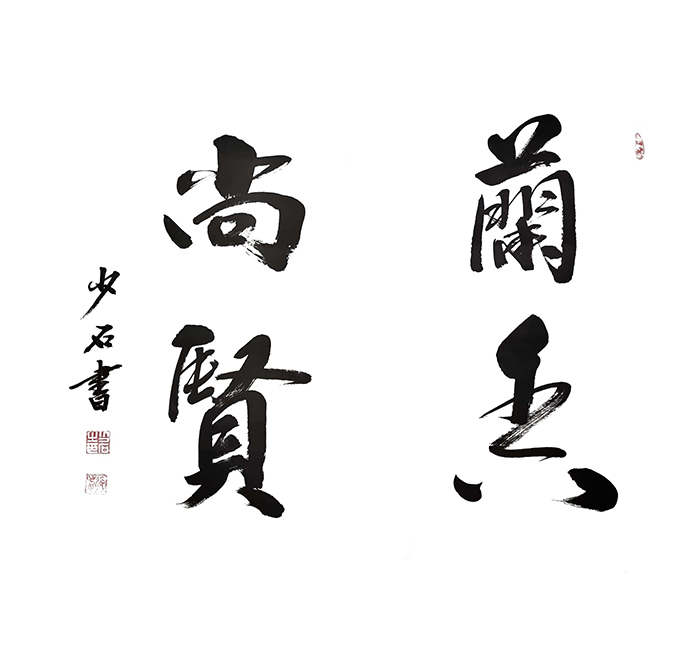 蘭兵
尚賢
少石書